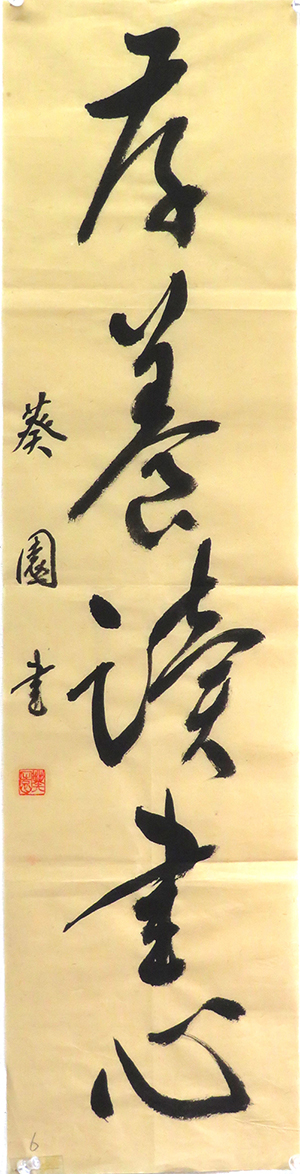 存養讀書心
葵園書
6